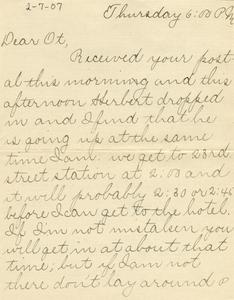 2-7-07
Thursday 6:00 P.M.
Dear Ot,
Received your post-
al this morning and this
afternoon Herbert dropped
in and I find that he
is going up at the same
time I am: we get to 23rd
street station at 2:03 and
it will probably 2:30 or 2:45
before I can get to the hotel.
If I'm not mistaken you
will get in at about that
time; but if I am not
there don't lay around